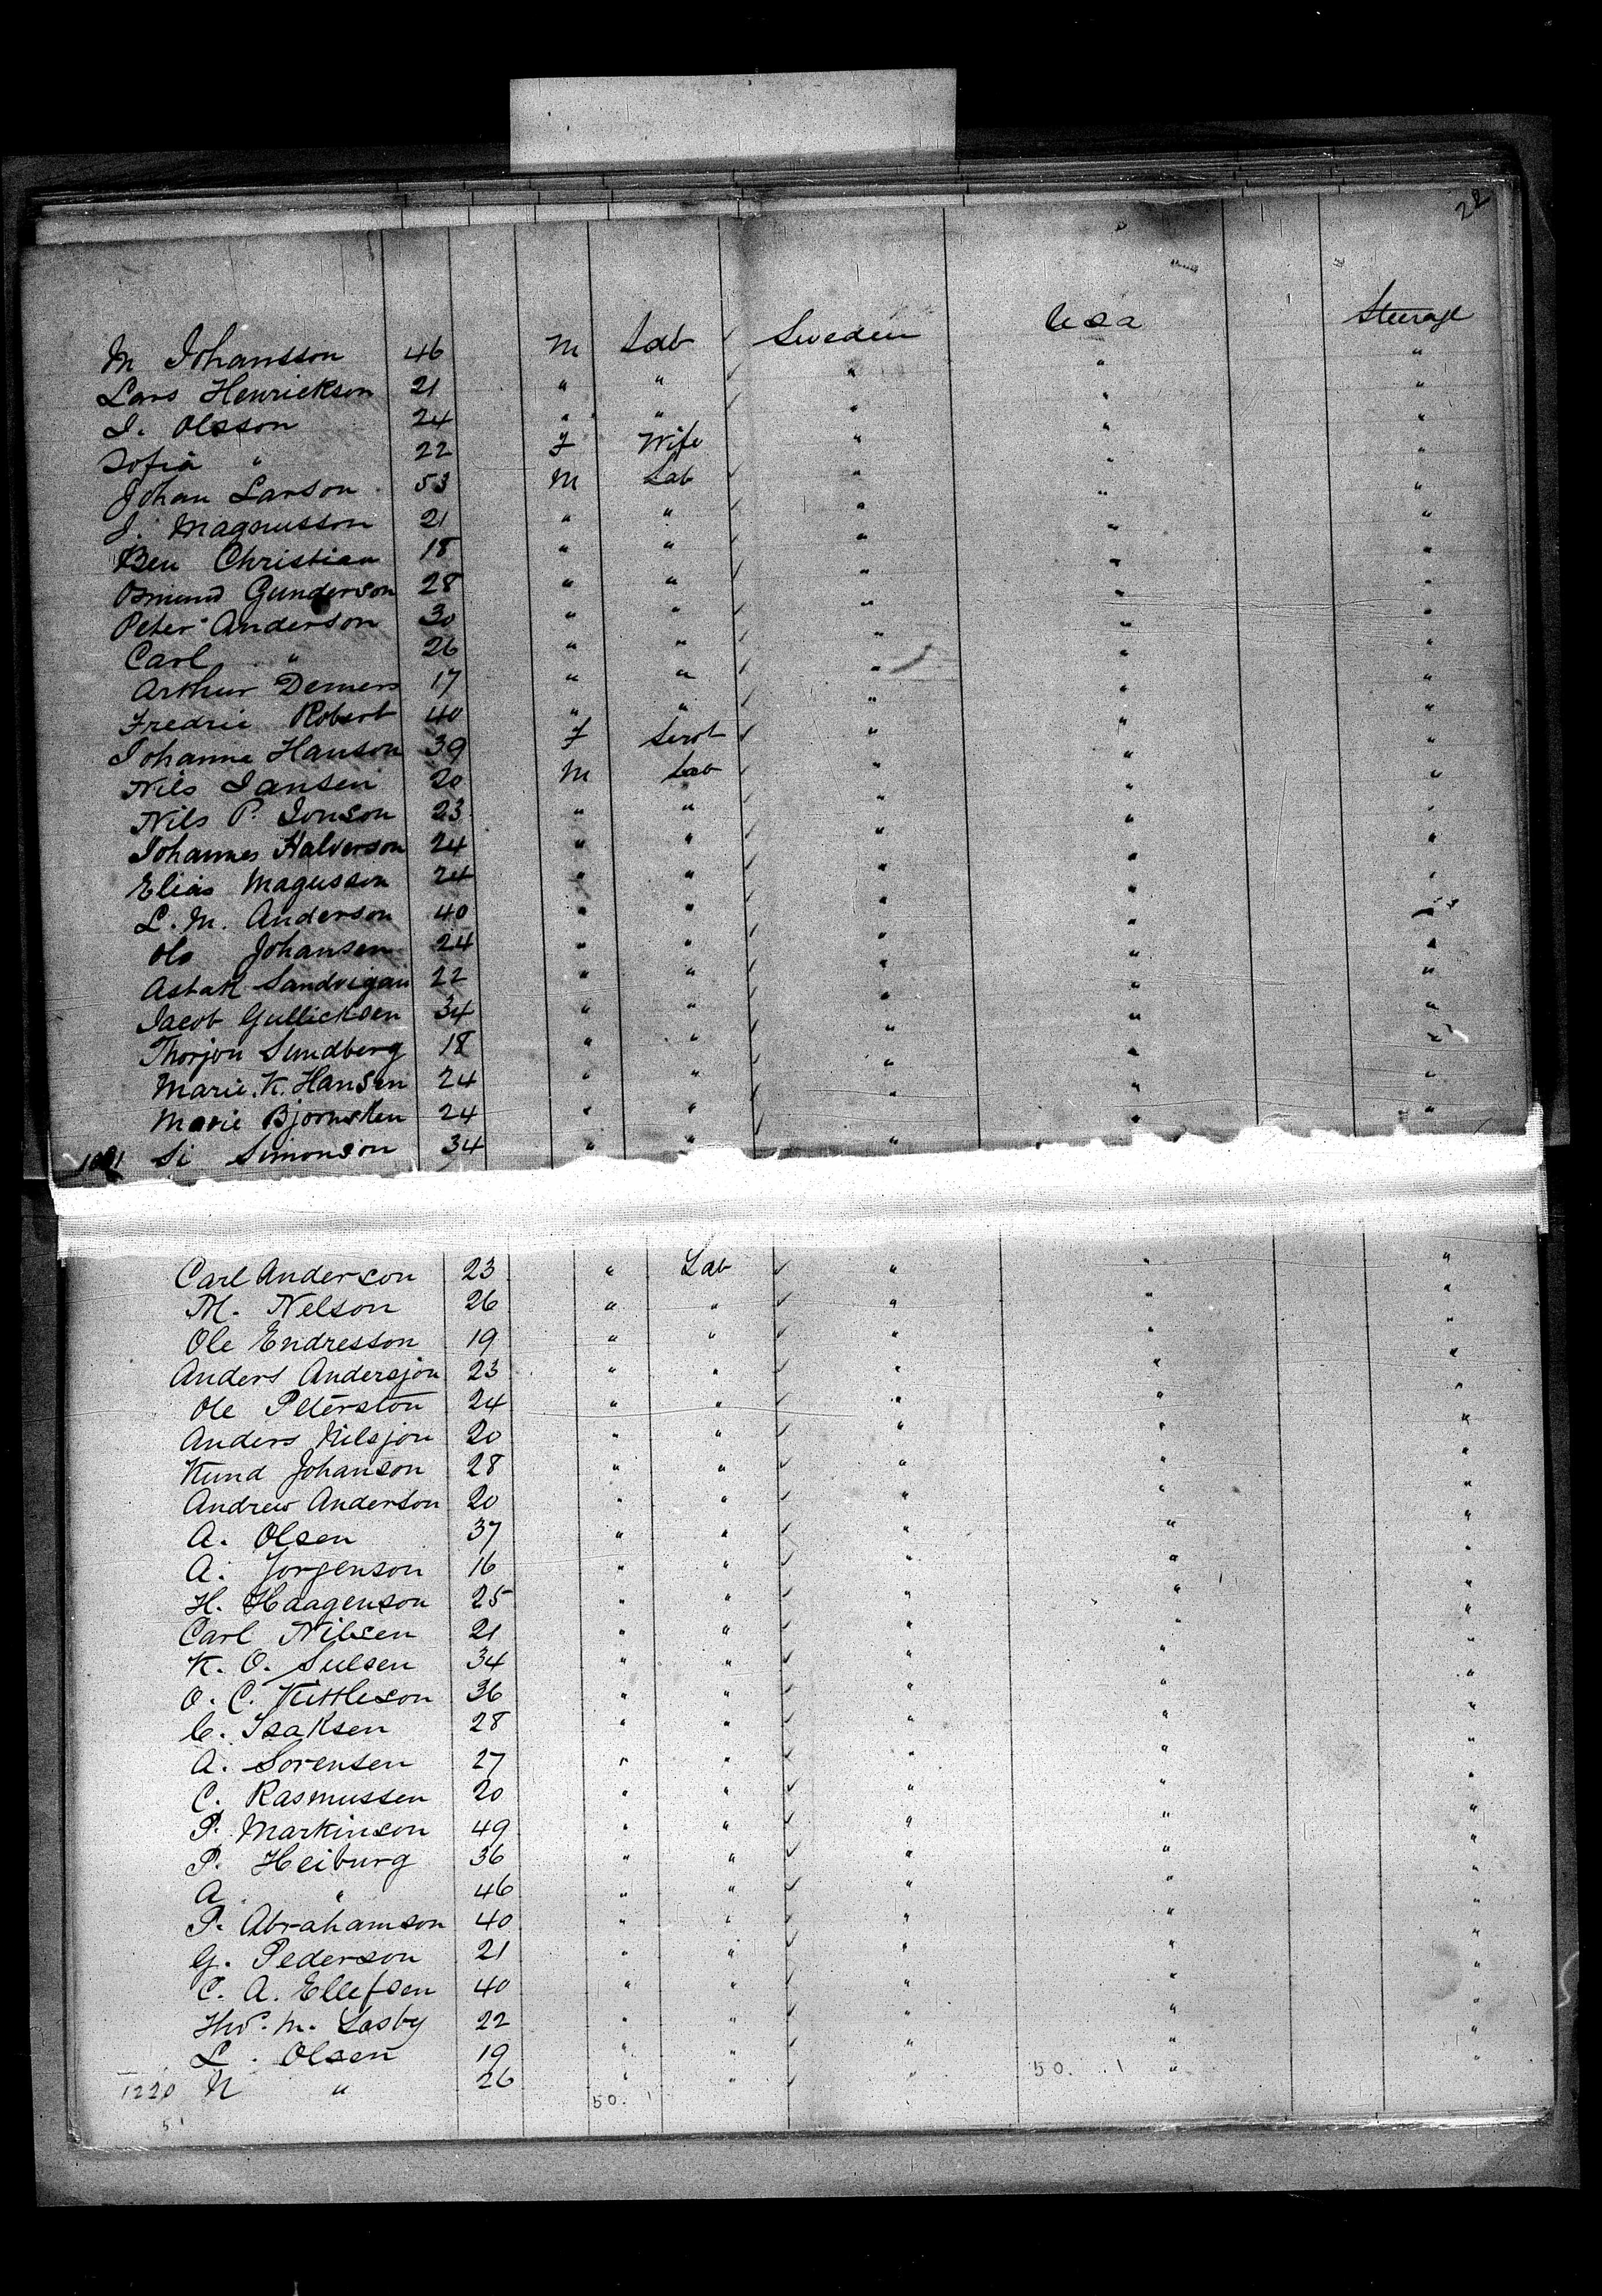 22
M Johansson 46 M Lab ✓ Sweden Usa Steerage
Lars Henrickson 21 " " ✓ " " "
I. Olsson 24 " " ✓ " " "
Sofia " 22 F Wife " " "
Johan Larson 53 M Lab ✓ " " "
J. Magnusson 21 " " ✓ " " "
Ben Christian 18 " " ✓ " " "
Osmund Gunderson 28 " " ✓ " " "
Peter Anderson 30 " " ✓ " " "
Carl " 26 " " ✓ " " "
Arthur Demers 17 " " ✓ " " "
Fredric Robert 40 " " ✓ " " "
Johanna Hanson 39 F Servt ✓ " " "
Nils Jansen 20 M Lab ✓ " " "
Nils P. Jonson 23 " " ✓ " " "
Johannes Halverson 24 " " ✓ " " "
Elias Magusson 24 " " ✓ " " "
L. M. Anderson 40 " " ✓ " " "
Ole Johansen 24 " " ✓ " " "
Astak Sandvigan 22 " " ✓ " " "
Jacob Gullicksen 34 " " ✓ " " "
Thorjon Sundberg 18 " " ✓ " " "
Marie. K. Hansen 24 " " ✓ " " "
Marie Bjornsten 24 " " ✓ " " "
Si Simonson 34 " " " " "
Carl Anderson 23 " Lab ✓ " " "
M. Nelson 26 " " ✓ " " "
Ole Endresson 19 " " ✓ " " "
Anders Andersjon 23 " " ✓ " " "
Ole Peterston 24 " " ✓ " " "
Anders Nilsjon 20 " " ✓ " " "
Knud Johanson 28 " " ✓ " " "
Andrew Anderson 20 " " ✓ " " "
A. Olsen 37 " " ✓ " " "
A. Jorgenson 16 " " ✓ " " "
H. Haagenson 25 " " ✓ " " "
Carl Nilsen 21 " " ✓ " " "
K. O. Sulsen 34 " " ✓ " " "
O. C. Kittleson 36 " " ✓ " " "
C. Isaksen 28 " " ✓ " " "
A. Sorensen 27 " " ✓ " " "
C. Rasmussen 20 " " ✓ " " "
P. Markinson 49 " " ✓ " " "
P. Heiburg 36 " " ✓ " " "
A. " 46 " " ✓ " " "
P. Abrahamson 40 " " ✓ " " "
G. Pederson 21 " " ✓ " " "
C. A. Ellefsen 40 " " ✓ " " "
M. Lasby 22 " " ✓ " " "
L. Olsen 19 " " ✓ " " "
1220 N " 26 " " ✓ " " "
50. 50. 1
51